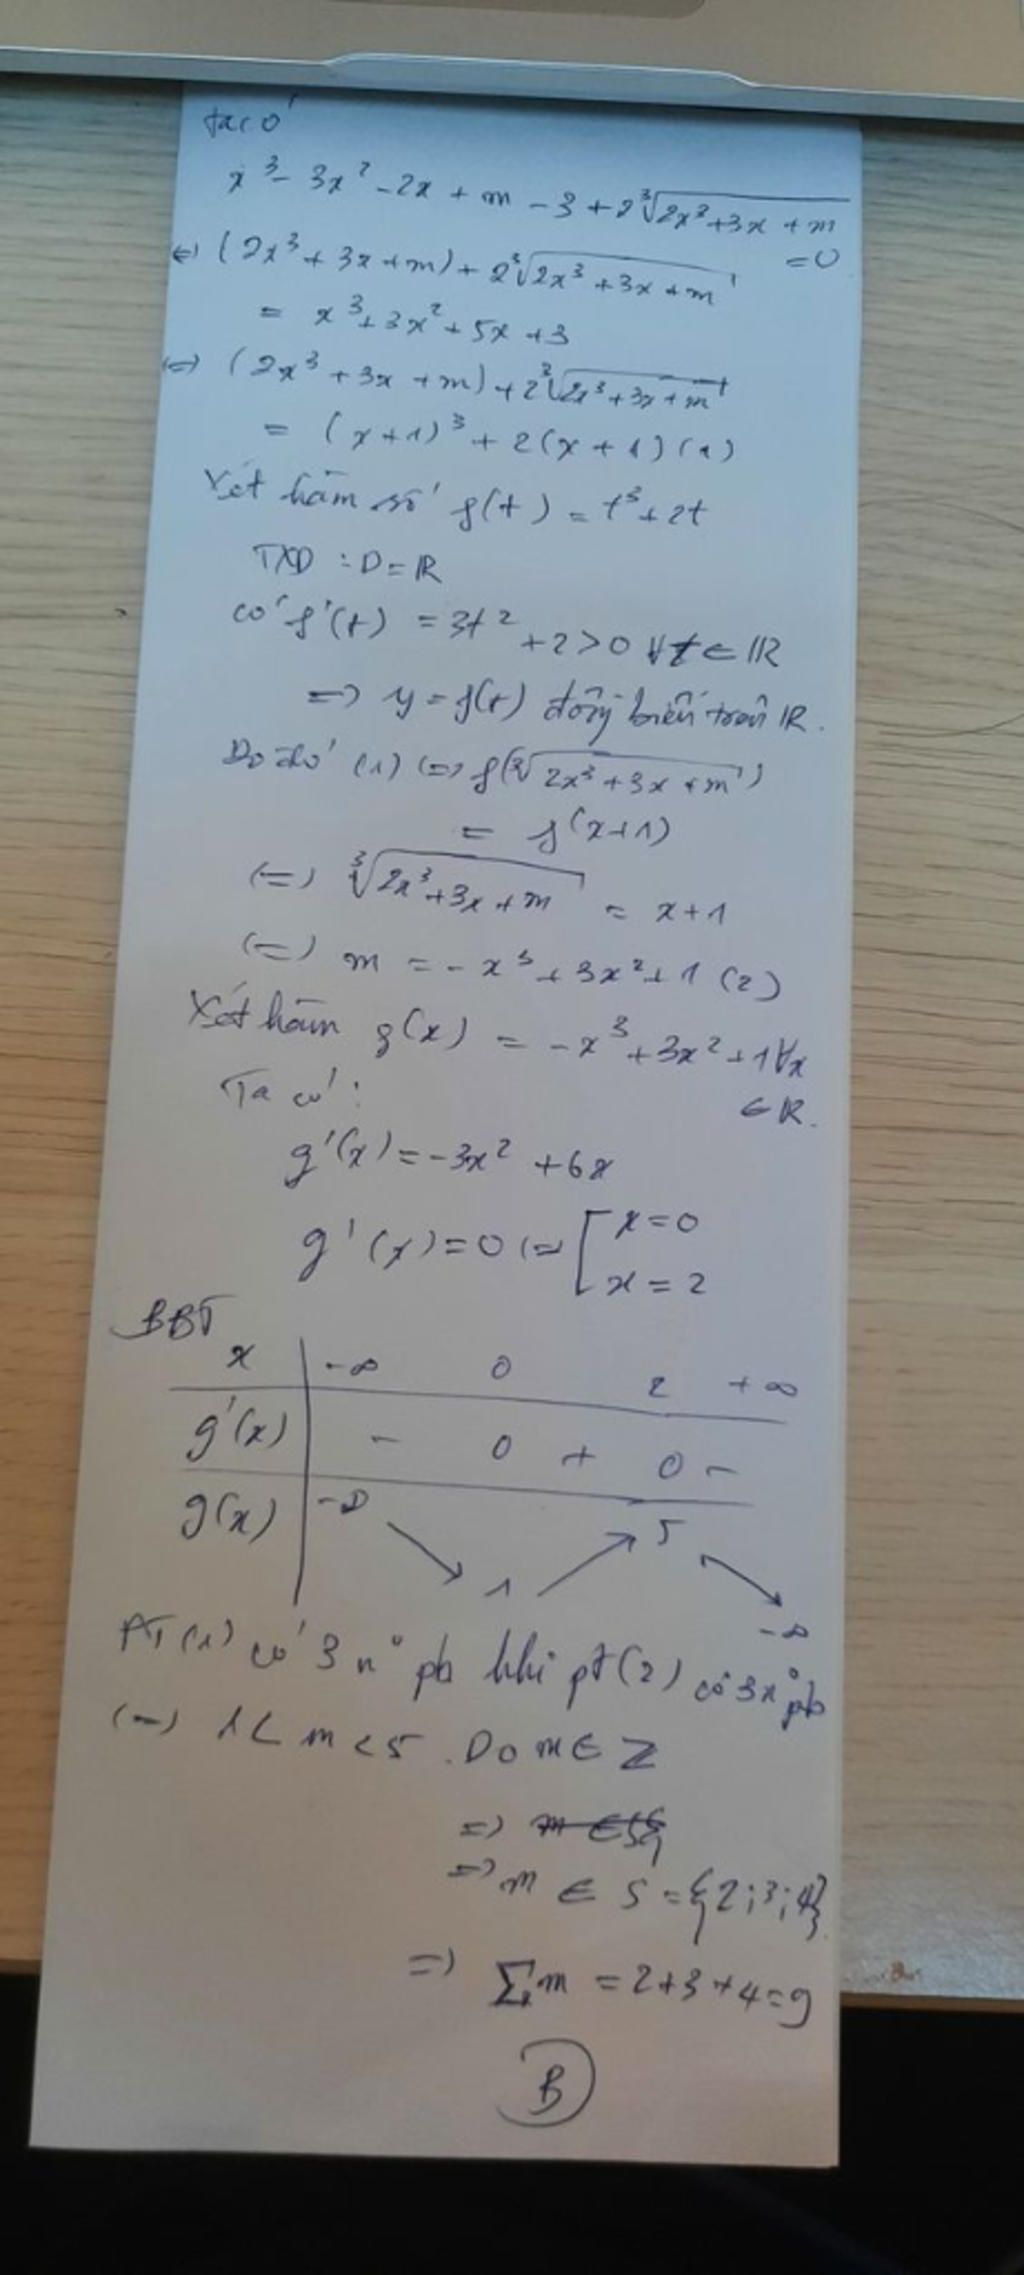 Ta có
x³ - 3x² - 2x + m - 3 + 2∛(2x³+3x+m) = 0
⇔ (2x³ + 3x + m) + 2∛(2x³+3x+m)
= x³ + 3x² + 5x + 3
⇔ (2x³ + 3x + m) + 2∛(2x³+3x+m)
= (x+1)³ + 2(x+1) (1)
Xét hàm số f(t) = t³ + 2t
TXD : D = ℝ
có f'(t) = 3t² + 2 > 0 ∀t ∈ ℝ
⇒ y = f(t) đồng biến trên ℝ.
Do đó (1) ⇔ f(∛(2x³+3x+m))
= f(x+1)
⇔ ∛(2x³+3x+m) = x+1
⇔ m = -x³ + 3x² + 1 (2)
Xét hàm g(x) = -x³ + 3x² + 1 ∀x
∈ ℝ.
Ta có :
g'(x) = -3x² + 6x
g'(x) = 0 ⇔ [ x = 0
x = 2
BBT
x | -∞ 0 2 +∞
g'(x) | - 0 + 0 -
g(x) | -∞ ↘ 1 ↗ 5 ↘ -∞
PT (1) có 3 n° pb khi pt (2) có 3 n° pb
⇔ 1 < m < 5 . Do m ∈ Z
⇒ m ∈
⇒ m ∈ S = {2;3;4}
⇒ ∑m = 2+3+4=9
B